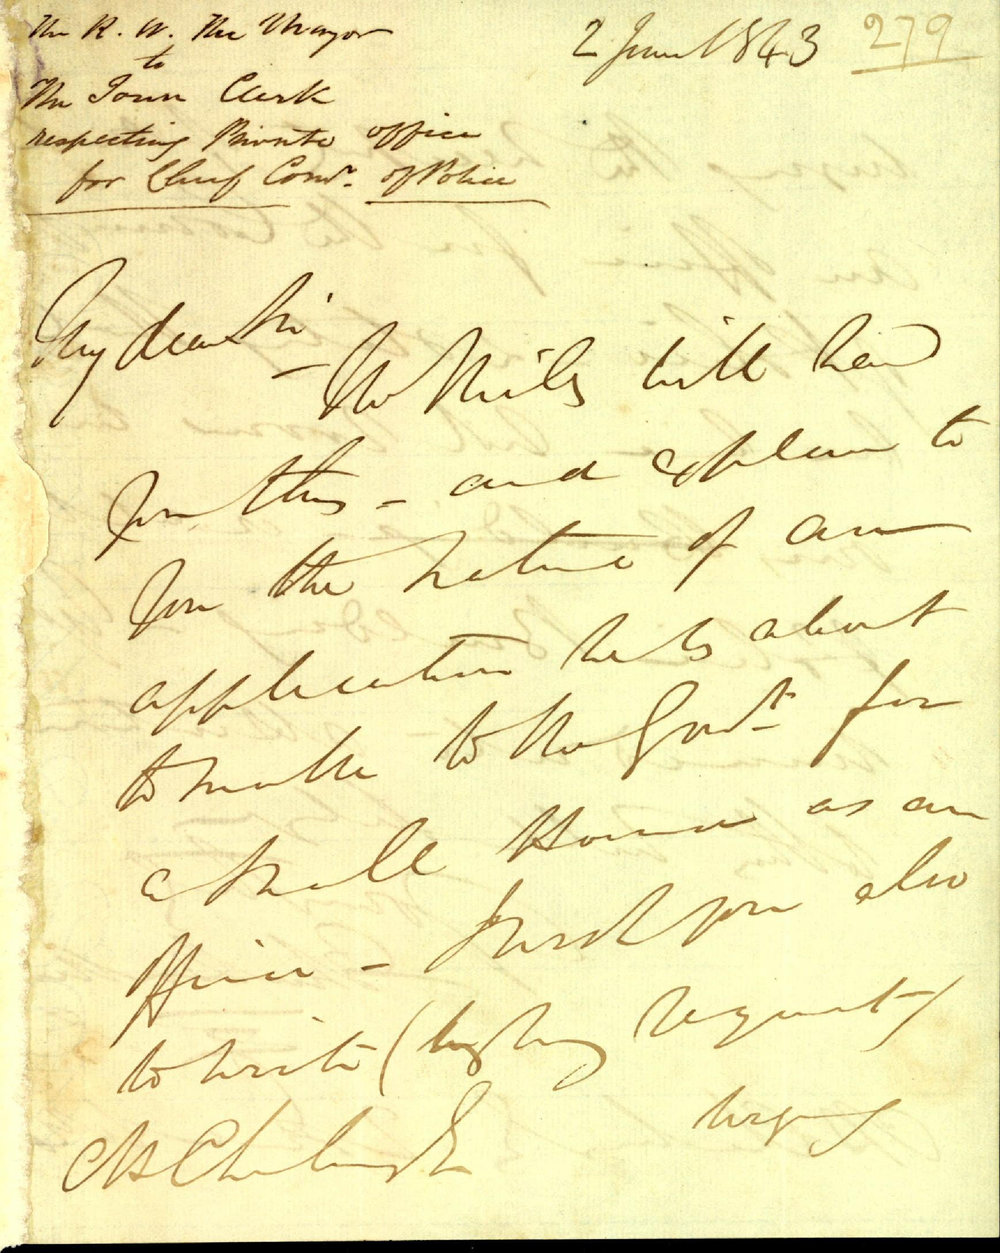 The R. W. The Mayor
to
The Town Clerk
respecting Private office
for Chief Cons. of Police
2 June 1843
279
My dear Sir
– Mr Miles will hand
you this – and explain to
you the nature of an
application he is about
to make to the Govt. for
a small House as an
office – I wish you also
to write (by my request)
urging
C H Chambers Esq